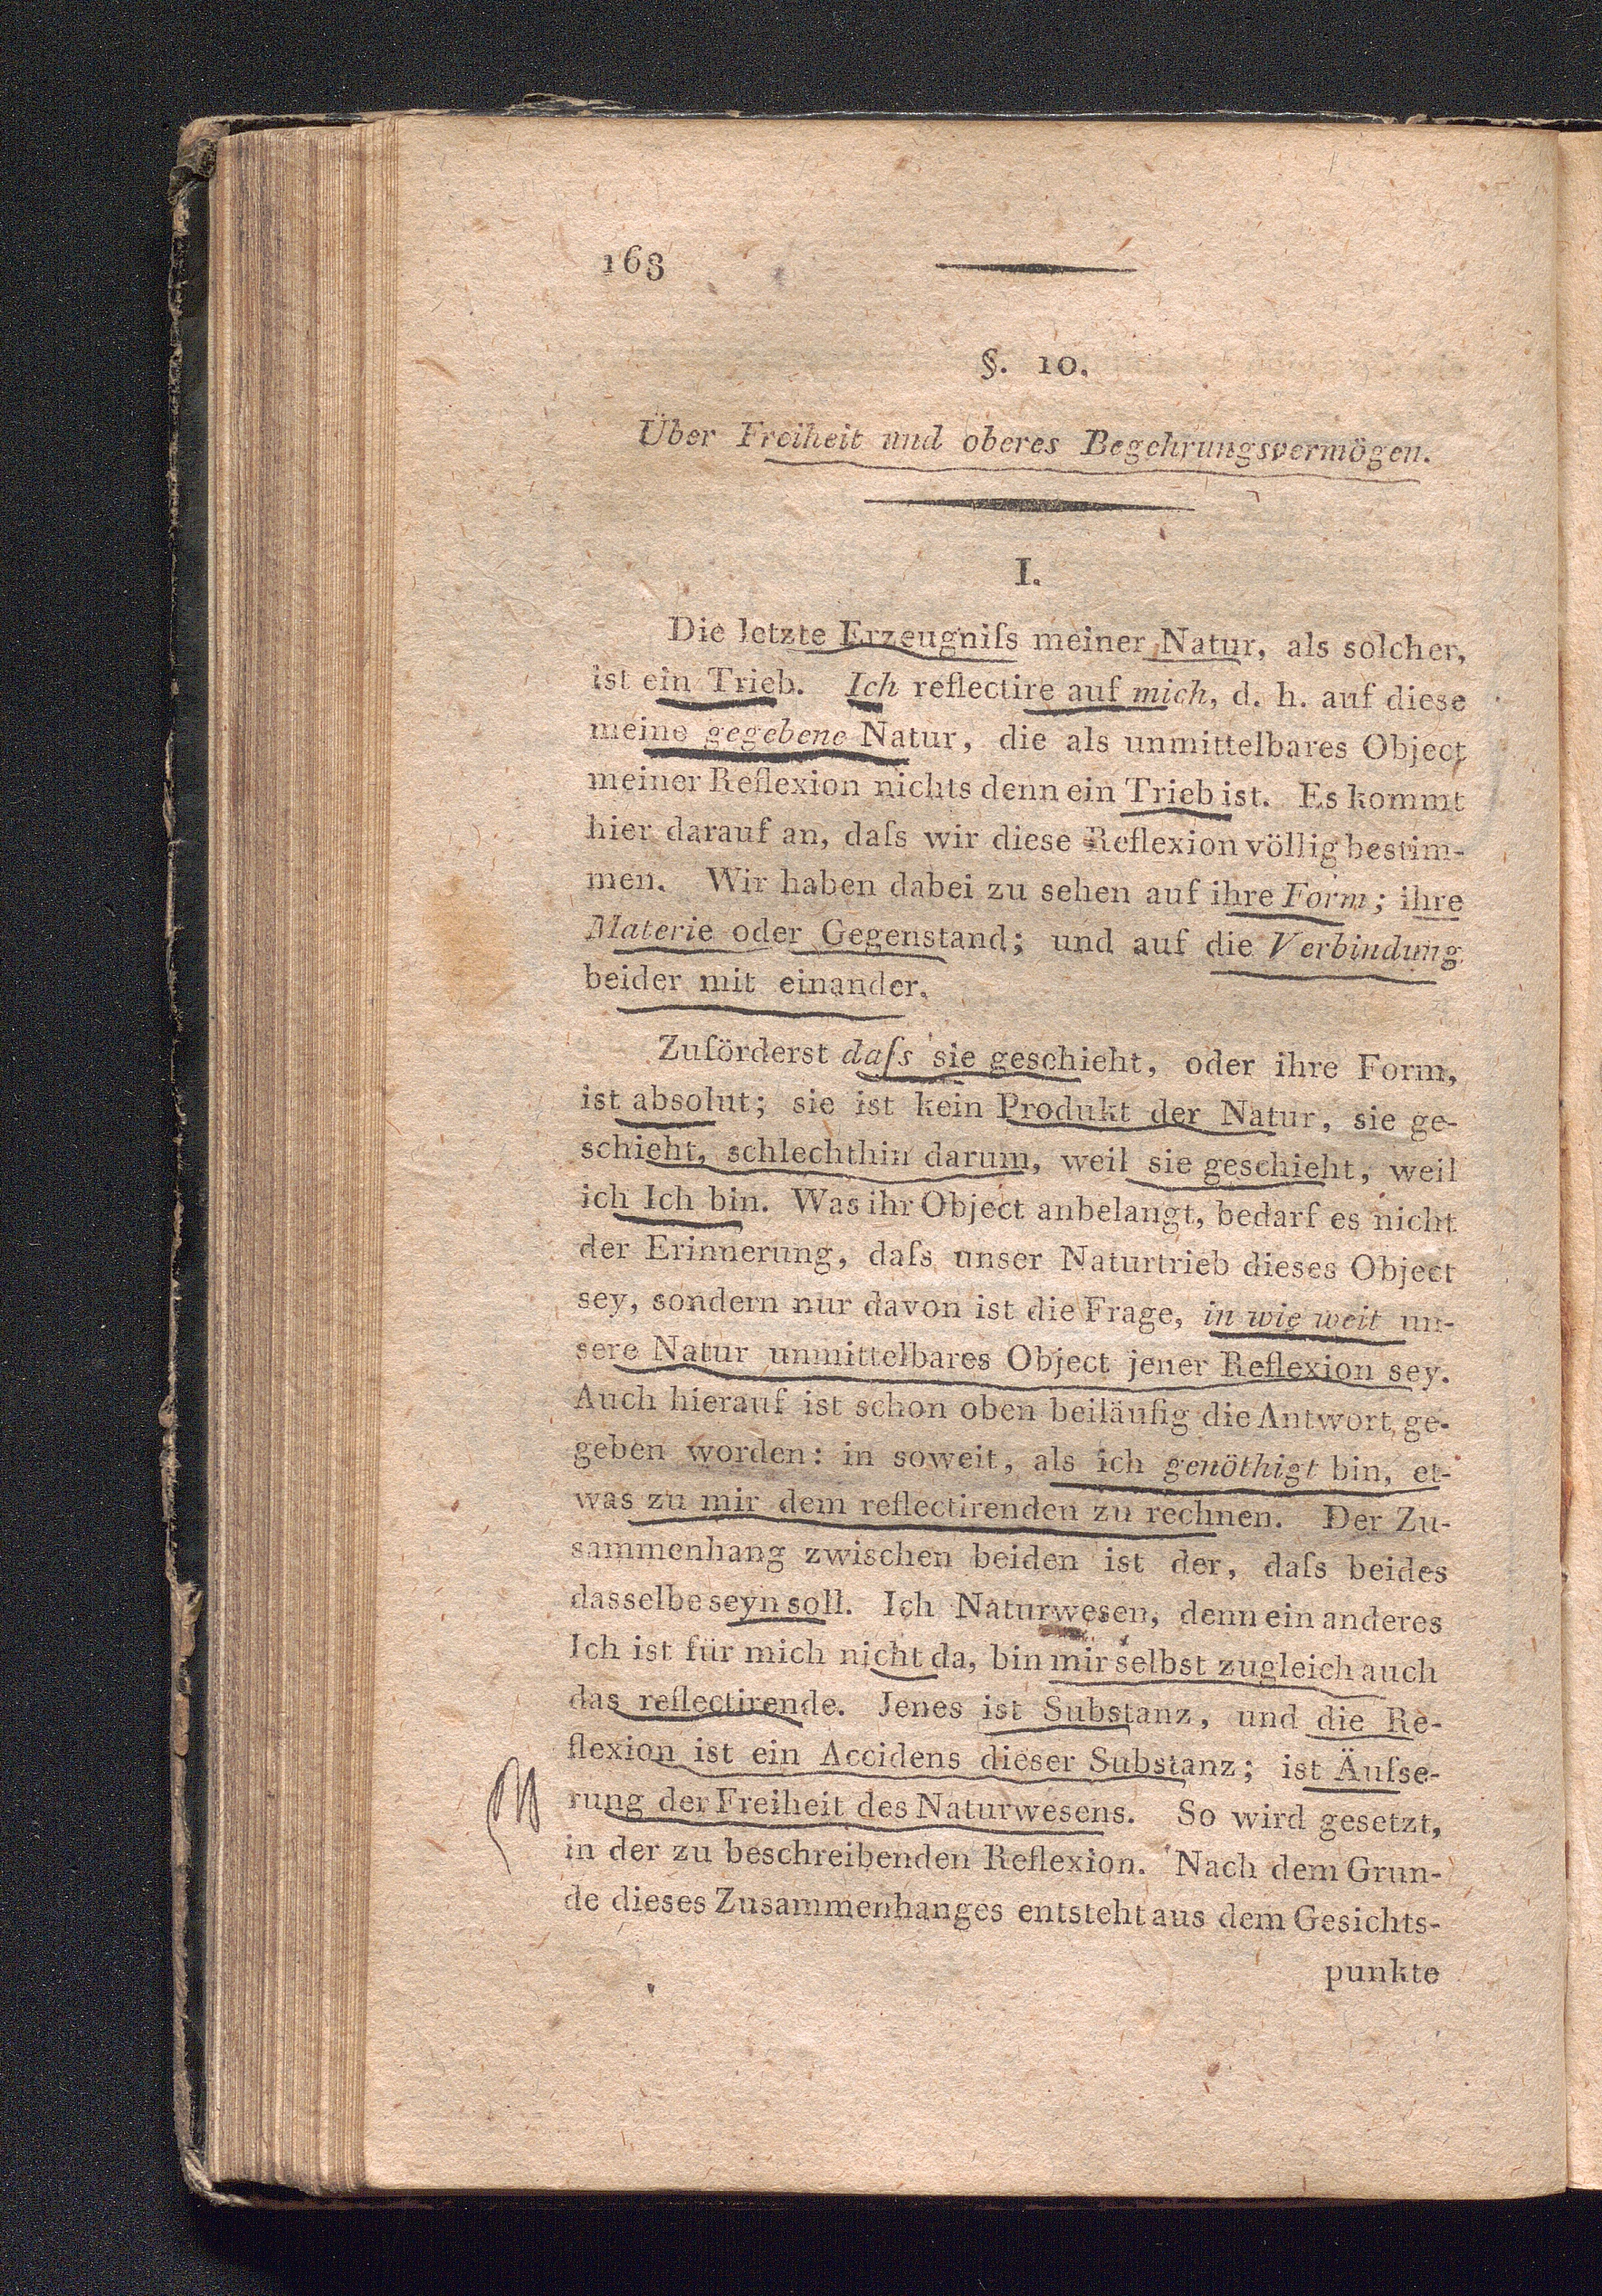 168
§. 10.
Über Freiheit und oberes Begehrungsvermögen.
I.
Die letzte Erzeugniſs meiner Natur, als solcher,
ist ein Trieb. Ich reflectire auf mich, d. h. auf diese
meine gegebene Natur, die als unmittelbares Object
meiner Reflexion nichts denn ein Trieb ist. Es kommt
hier darauf an, daſs wir diese Reflexion völlig bestim-
men. Wir haben dabei zu sehen auf ihre Form; ihre
Materie oder Gegenstand; und auf die Verbindung
beider mit einander.
Zuförderst daſs sie geschieht, oder ihre Form,
ist absolut; sie ist kein Produkt der Natur, sie ge-
schieht, schlechthin darum, weil sie geschieht, weil
ich Ich bin. Was ihr Object anbelangt, bedarf es nicht
der Erinnerung, daſs unser Naturtrieb dieses Object
sey, sondern nur davon ist die Frage, in wie weit un-
sere Natur unmittelbares Object jener Reflexion sey.
Auch hierauf ist schon oben beiläufig die Antwort ge-
geben worden: in soweit, als ich genöthigt bin, et-
was zu mir dem reflectirenden zu rechnen. Der Zu-
sammenhang zwischen beiden ist der, daſs beides
dasselbe seyn soll. Ich Naturwesen, denn ein anderes
Ich ist für mich nicht da, bin mir selbst zugleich auch
das reflectirende. Jenes ist Substanz, und die Re-
flexion ist ein Accidens dieser Substanz; ist Äuſse-
rung der Freiheit des Naturwesens. So wird gesetzt,
in der zu beschreibenden Reflexion. Nach dem Grun-
de dieses Zusammenhanges entsteht aus dem Gesichts-
punkte